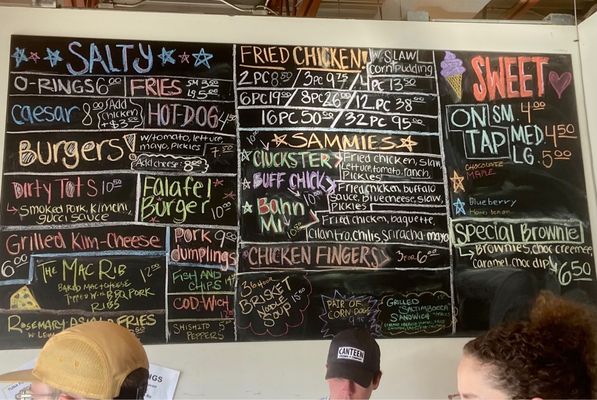 SALTY
O-RINGS 6.00 FRIES SM 3.50
LG 5.00
Caesar 8.00 Add
chicken
+$3.50
HOT-DOG
Burgers! w/tomato, lettuce,
mayo, Pickles 7.50
Add cheese
DIRTY TOTS 10.50
Smoked Pork, Kimchi,
gucci SAUCE
Falafel
Burger 10.00
Grilled Kim-Cheese
6.00
PORK 9.00
DUMPLINGS
THE MAC RIB 12.00
BAKED MAC + CHEESE
TOPPED W/ BBQ PORK
RIBS
FISH AND
CHIPS
COD-WICH
ROSEMARY FRIES
SHISHITO
PEPPERS
FRIED CHICKEN
W/SLAW
Corn Pudding
2 PC 8.50 / 3 PC 9.75 /
PC 13.50
6 PC 19.50 / 8 PC 26.00 / 12 PC 38.00
16 PC 50.00 / 32 PC 95.00
SAMMIES
CLUCKSTER Fried chicken, slaw
Lettuce, tomato, ranch,
Pickles
BUFF CHICK Fried chicken, buffalo
Sauce, Bluecheese, slaw,
Pickles
Bahn
Mi Fried chicken, baguette,
cilantro, chilis, sriracha-mayo
CHICKEN FINGERS 3 for 6.00
36 Hour
BRISKET
Noodle
SOUP
PAIR OF
CORN DOGS
GRILLED
SALTIMBOCCA
SANDWICH
SWEET
ON
TAP
SM. 4.00
MED. 4.50
LG. 5.00
CHOCOLATE
MAPLE
Blueberry
Special Brownie!
BROWNIES, choc creemee,
caramel, choc dip
6.50
CANTEEN